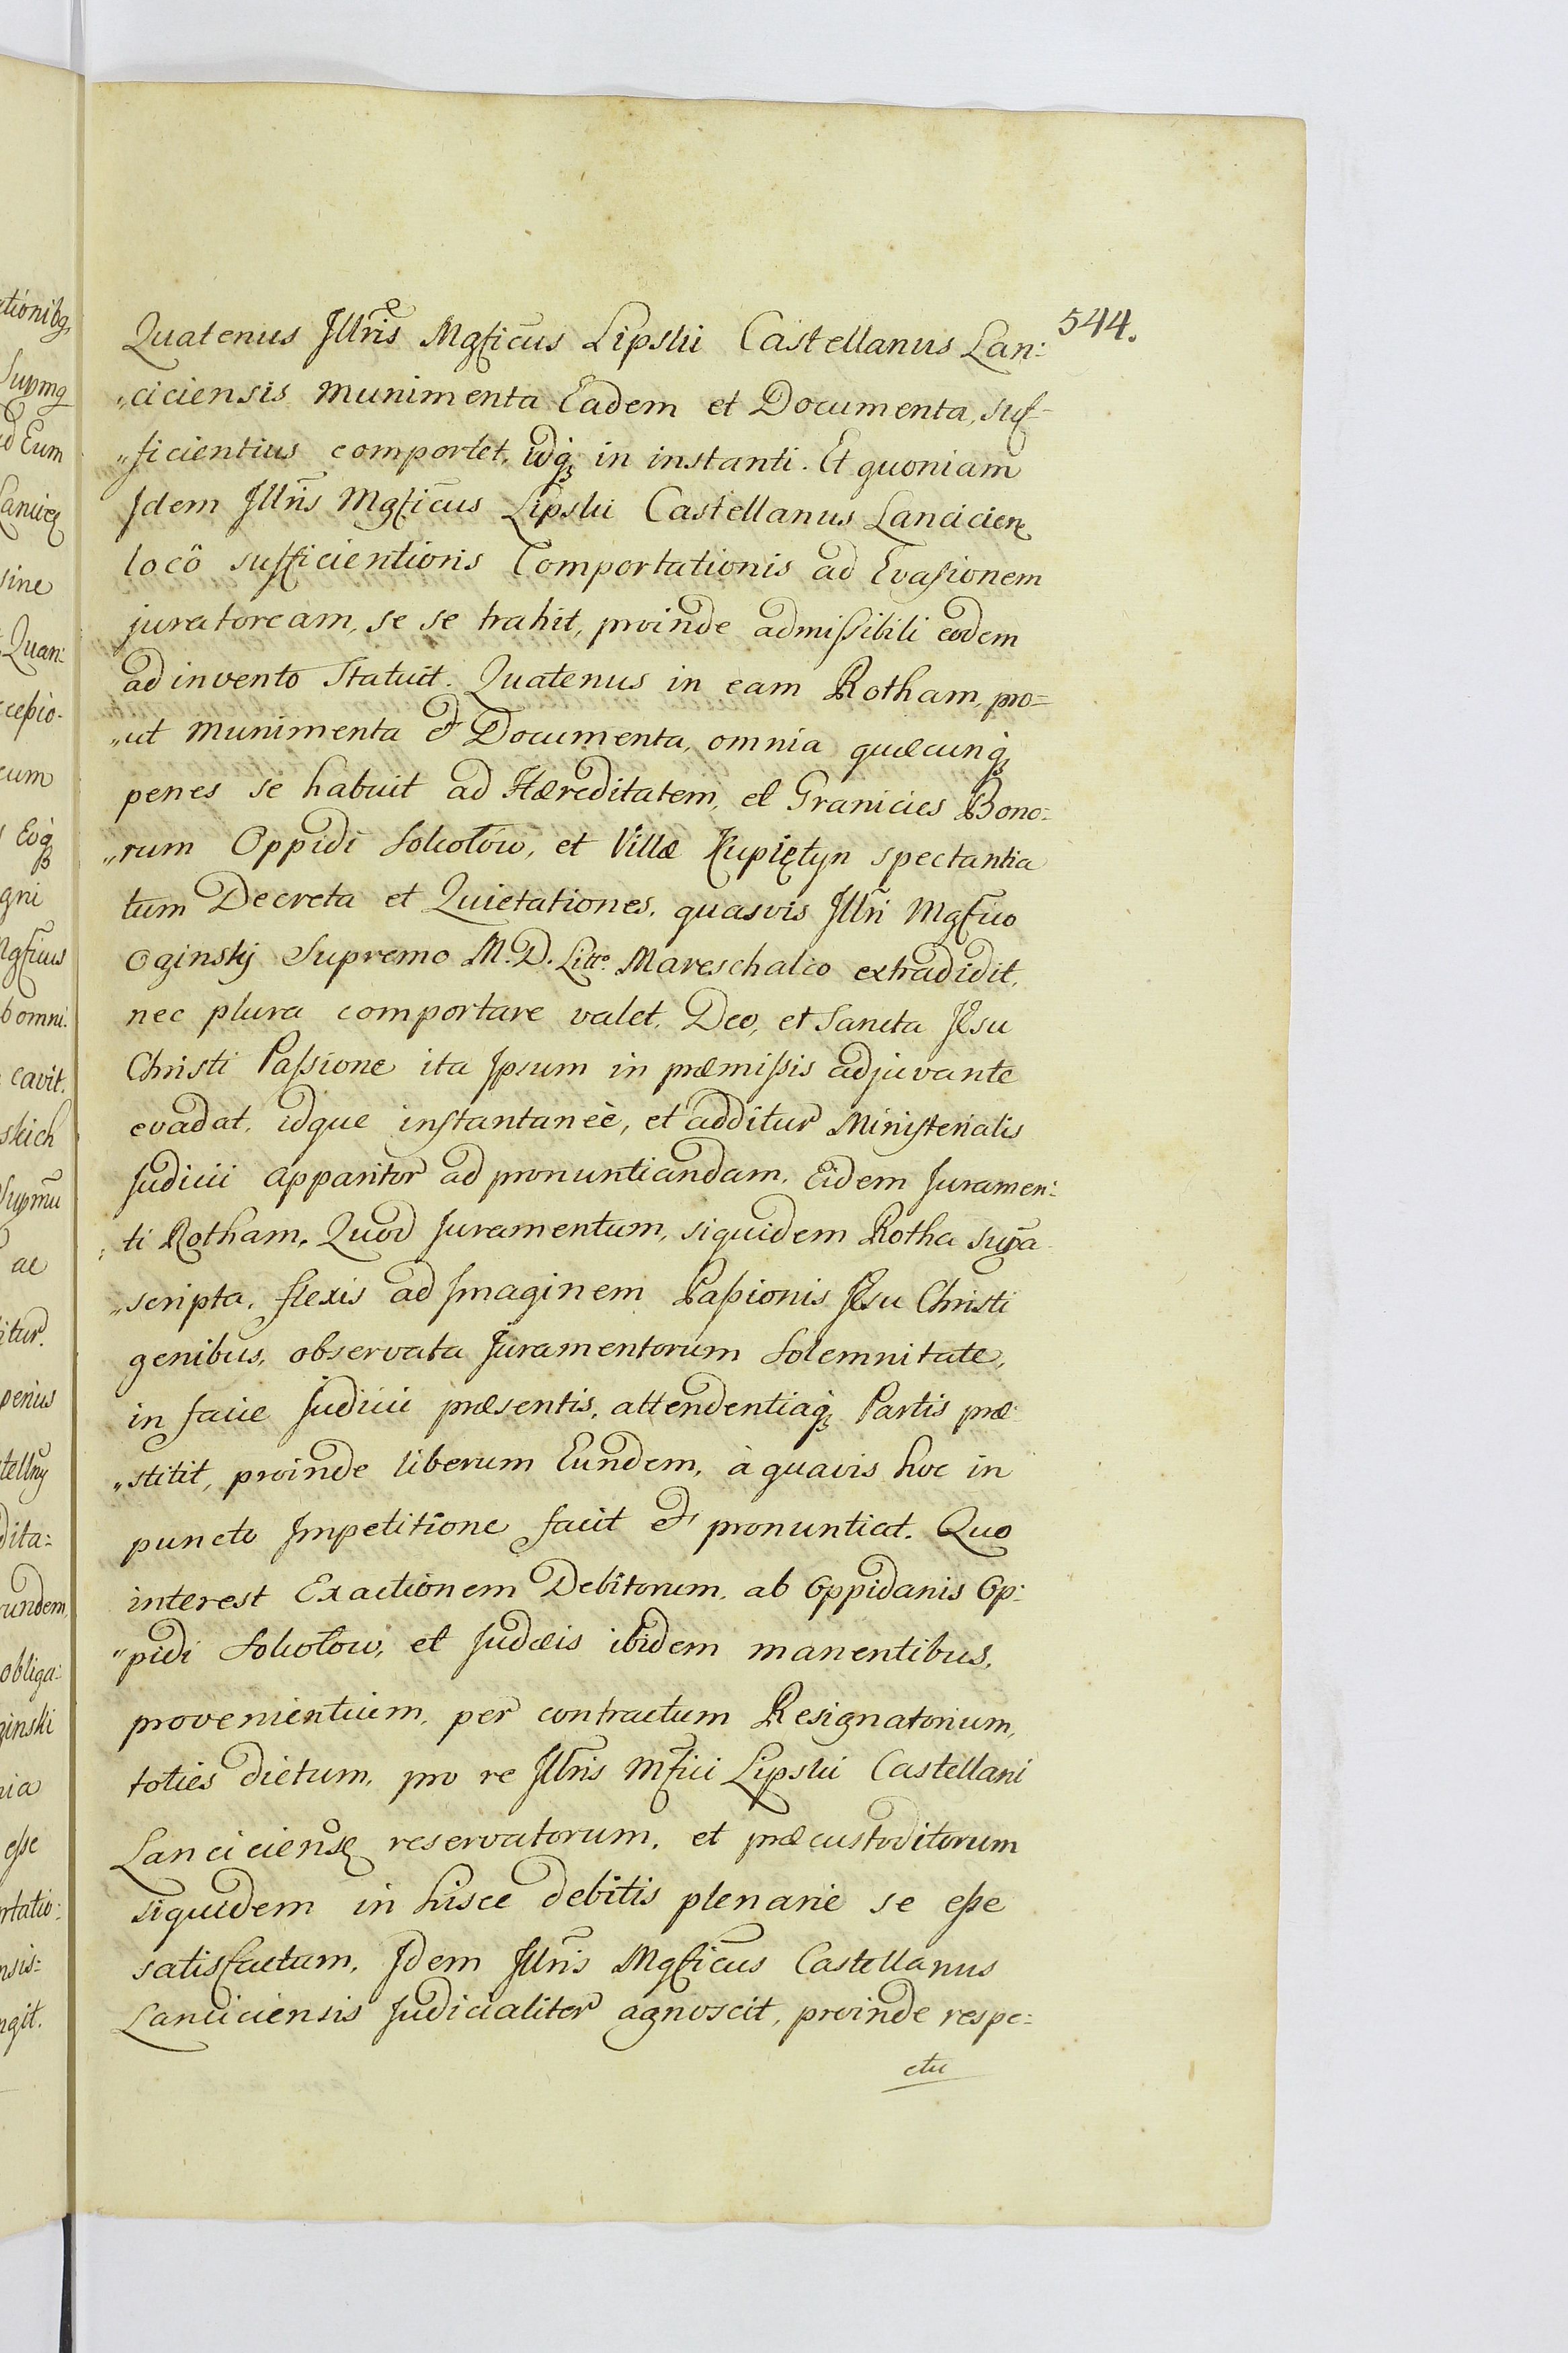 544.
Quatenus Jllris Mgficus Lipski Castellanus Lan:
„ciciensis munimenta Eadem et Documenta, suf-
„ficientius comportet, idq; in instanti. Et quoniam
Jdem Jllris Mgficus Lipski Castellanus Lanciciens
locô sufficientioris Comportationis ad Evasionem
juratoream, se se trahit, proinde admissibili eodem
ad invento Statuit. Quatenus in eam Rotham, pro=
„ut munimenta et Documenta, omnia quæcunq;
penes se habuit ad Hæreditatem, et Granicies Bono:
„rum Oppidi Sokołów, et Villæ Kupiętyn spectantia
tum Decreta et Quietationes, quasvis Jllri Mgfico
Oginskij Supremo M. D. Litto. Mareschalco extradidit,
nec plura comportare valet, Deo, et Sancta Jesu
Christi Passione ita Jpsum in præmissis adjuvante
evadat, idque instantanee, et additur Ministerialis
Judicii apparitor ad pronuntiandam, Eidem Juramen:
„ti Rotham. Quod Juramentum, siquidem Rotha supra
„scripta, flexis ad Jmaginem Passionis Jesu Christi
genibus, observata Juramentorum Solemnitate,
in facie Judicii præsentis, attendentiaq; Partis præ
„stitit, proinde liberum Eundem, à quavis hoc in
puncto Jmpetitione facit et pronuntiat. Quo
interest Exactionem Debitorum, ab Oppidanis Op:
„pidi Sokołow, et Judæis ibidem manentibus,
provenientium, per contractum Resignatorium,
toties dictum, pro re Jllris Mfici Lipski Castellani
Lanciciens reservatorum, et præcustoditorum
siquidem in hisce debitis plenarie se esse
satisfactum, Jdem Jllris Mgficus Castellanus
Lanciciensis Judicialiter agnoscit, proinde respe:
ctu